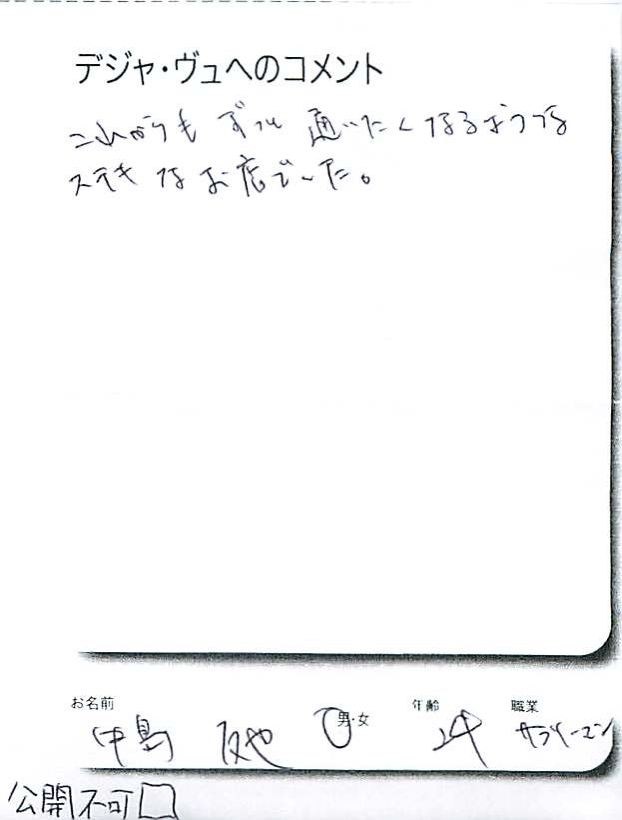 デジャ・ヴュへのコメント
これからも ずっと 通いたくなるような
ステキなお店でした。
お名前 男・女 年齢 職業
中島 24
公開不可